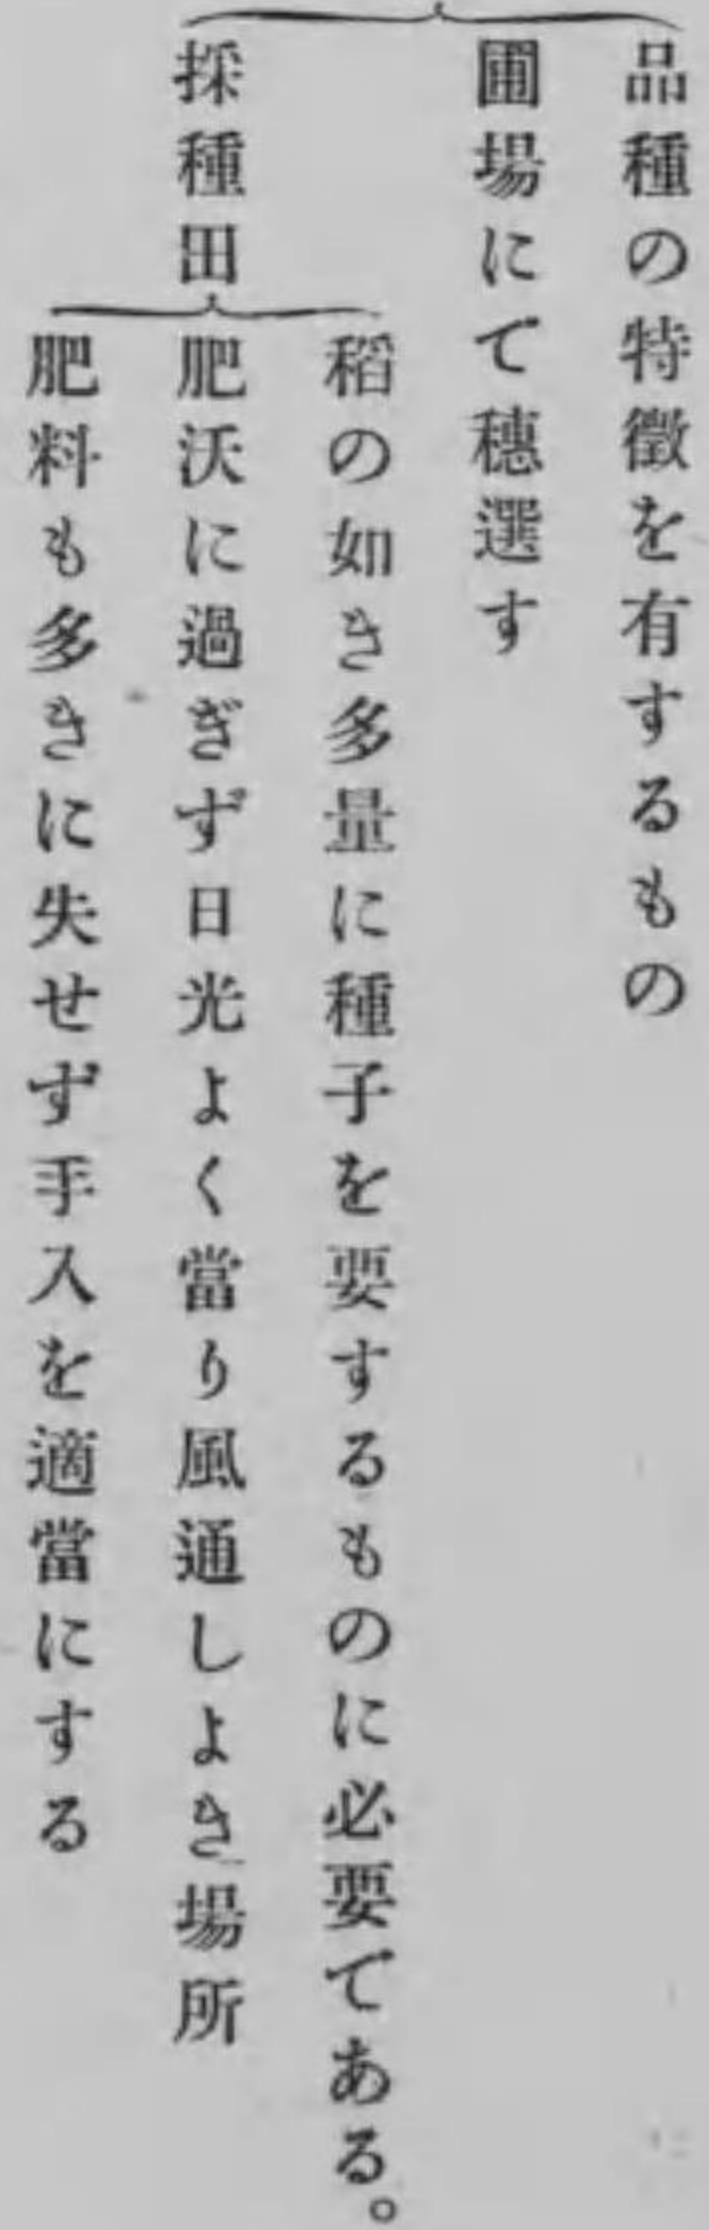 品種の特徵を有するもの
圃場にて穗選す
採種田
稻の如き多量に種子を要するものに必要である。
肥沃に過ぎず日光よく當り風通しよき場所
肥料も多きに失せず手入を適當にする